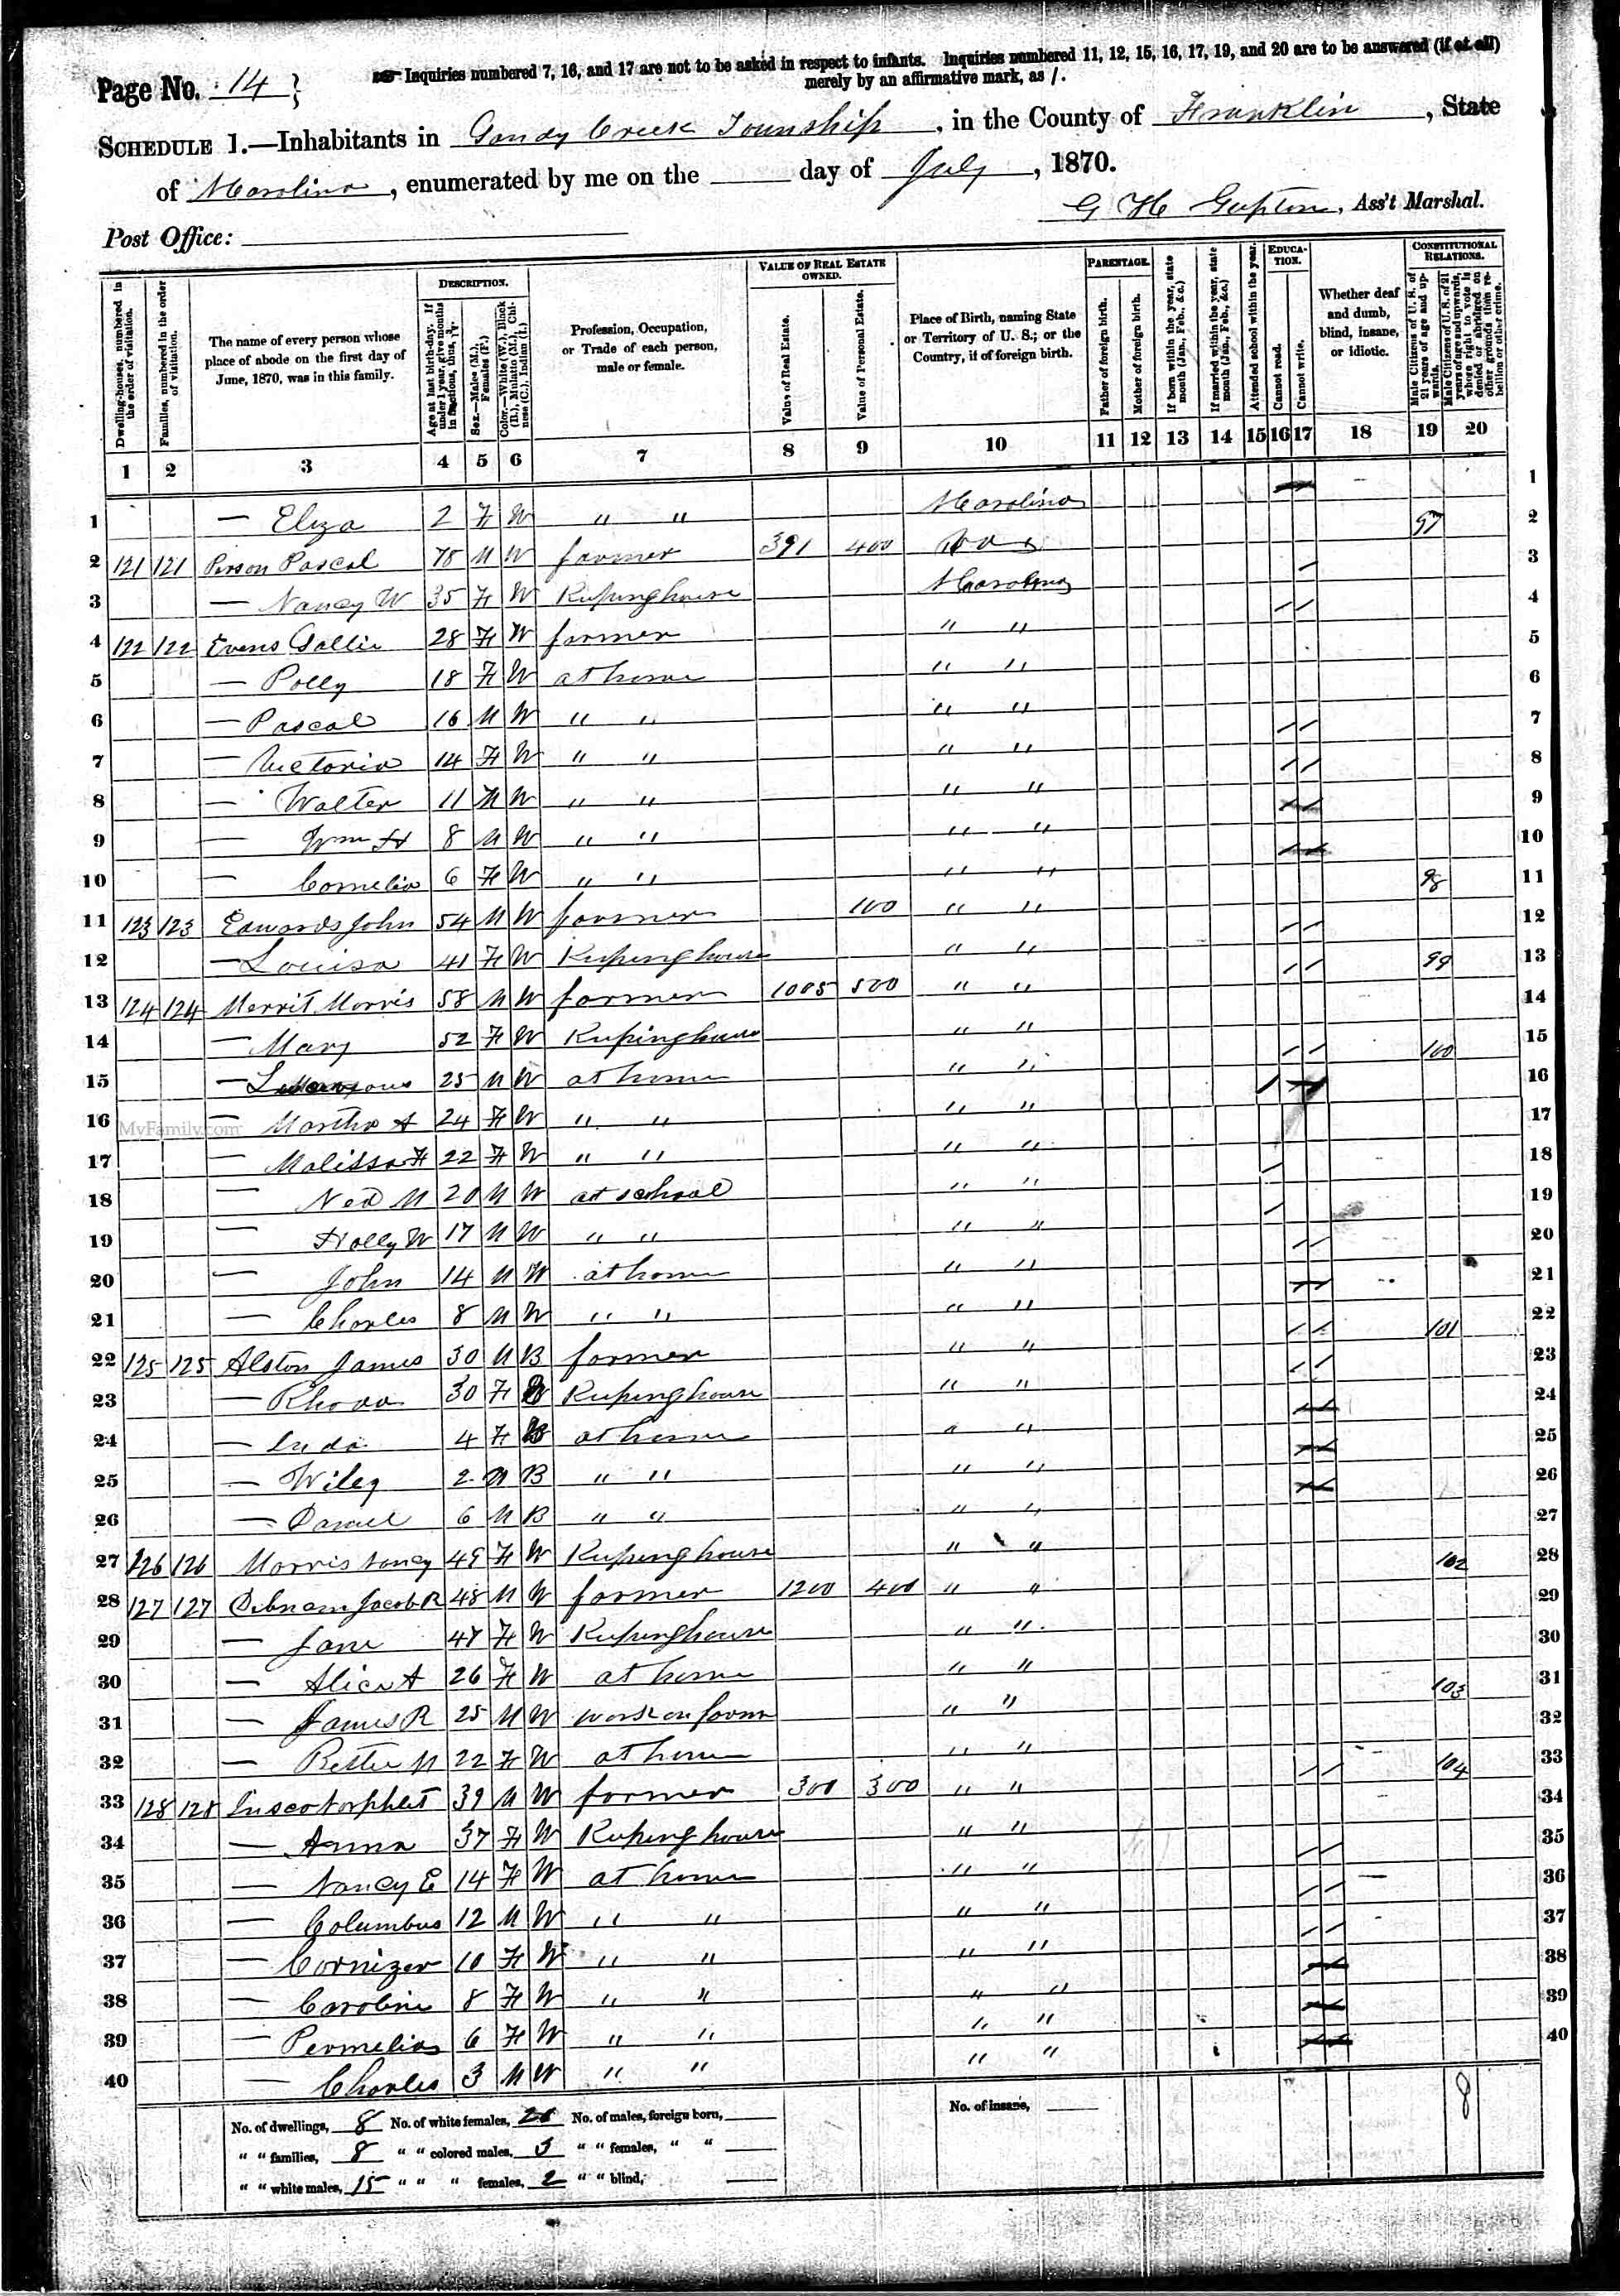 Page No. 14
Inquiries numbered 7, 16, and 17 are not to be asked in respect to infants. Inquiries numbered 11, 12, 15, 16, 17, 19, and 20 are to be answered (if at all)
merely by an affirmative mark, as /.
SCHEDULE 1.—Inhabitants in Sandy Creek Township, in the County of Franklin, State
of N Carolina, enumerated by me on the ___ day of July, 1870.
Post Office: G H Gupton, Ass't Marshal.
DESCRIPTION. VALUE OF REAL ESTATE OWNED. PARENTAGE. EDUCATION. CONSTITUTIONAL RELATIONS.
Dwelling-houses, numbered in the order of visitation.
Families, numbered in the order of visitation.
The name of every person whose place of abode on the first day of June, 1870, was in this family.
Age at last birth-day. If under 1 year, give months in fractions, thus, 3/12.
Sex.—Males (M.), Females (F.)
Color.—White (W.), Black (B.), Mulatto (M.), Chinese (C.), Indian (I.)
Profession, Occupation, or Trade of each person, male or female.
Value of Real Estate.
Value of Personal Estate.
Place of Birth, naming State or Territory of U. S.; or the Country, if of foreign birth.
Father of foreign birth.
Mother of foreign birth.
If born within the year, state month (Jan., Feb., &c.)
If married within the year, state month (Jan., Feb., &c.)
Attended school within the year.
Cannot read.
Cannot write.
Whether deaf and dumb, blind, insane, or idiotic.
Male Citizens of U. S. of 21 years of age and upwards.
Male Citizens of U. S. of 21 years of age and upwards, whose right to vote is denied or abridged on other grounds than rebellion or other crime.
1 2 3 4 5 6 7 8 9 10 11 12 13 14 15 16 17 18 19 20
1 — Eliza 2 F W " " N Carolina 1
2 121 121 Person Pascal 78 M W farmer 391 400 97 2
3 — Nancy W 35 F W Kepinghouse N Carolina / 3
4 122 122 Evans Sallie 28 F W farmer " " / / 4
5 — Polly 18 F W at home " " 5
6 — Pascal 16 M W " " " " 6
7 — Victoria 14 F W " " " " / / 7
8 — Walter 11 M W " " " " / / 8
9 — Wm H 8 M W " " " " 9
10 — Cornelia 6 F W " " " " 10
11 123 123 Edwards John 54 M W farmer 100 " " 98 11
12 — Louisa 41 F W Kepinghouse " " / / 12
13 124 124 Merrit Morris 58 M W farmer 1085 500 " " / / 99 13
14 — Mary 52 F W Kepinghouse " " 14
15 — 25 M W at home " " / / 100 15
16 — Martha A 24 F W " " " " 16
17 — Malissa F 22 F W " " " " 17
18 — Ned M 20 M W at school " " / 18
19 — Holly W 17 M W " " " " / 19
20 — John 14 M W at home " " / / 20
21 — Charles 8 M W " " " " 21
22 125 125 Alston James 30 M B farmer " " / / 101 22
23 — Rhoda 30 F B Kepinghouse " " / / 23
24 — Luda 4 F B at home " " 24
25 — Wiley 2 M B " " " " 25
26 — Daniel 6 M B " " " " 26
27 126 126 Morris Nancy 49 F W Kepinghouse " " 27
28 127 127 Debnam Jacob R 48 M W farmer 1200 400 " " 102 28
29 — Jane 47 F W Kepinghouse " " 29
30 — Alice A 26 F W at home " " 30
31 — James R 25 M W work on farm " " 103 31
32 — Bettie M 22 F W at home " " 32
33 128 128 Insco Norphlet 39 M W farmer 300 300 " " / / 104 33
34 — Anna 37 F W Kepinghouse " " 34
35 — Nancy E 14 F W at home " " / / 35
36 — Columbus 12 M W " " " " / / 36
37 — Cornizer 10 F W " " " " / / 37
38 — Caroline 8 F W " " " " 38
39 — Permelia 6 F W " " " " 39
40 — Charles 3 M W " " " " 40
No. of dwellings, 8 No. of white females, 20 No. of males, foreign born, No. of insane, 8
" " families, 8 " " colored males, 3 " " females, " "
" " white males, 15 " " " females, 2 " " blind,
MyFamily.com